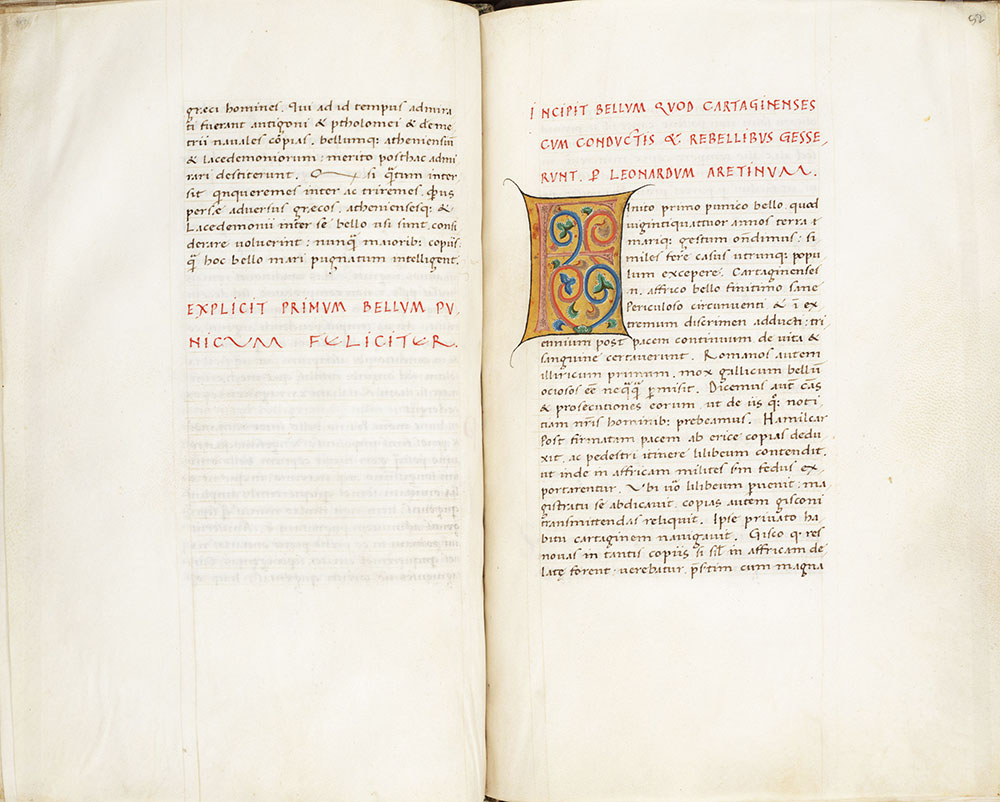 gręci homines. Qui ad id tempus admira
ti fuerant antigoni & ptholomei & deme
trii navales cōpias. bellumq; atheniensiū
& lacedemoniorum: merito posthac admi
rari destiterent. Qḋ si q̄tum inter
sit qnqueremes inter ac triremes. quis
perse adversus gręcos. atheniensesq; &
Lacedemonii inter se bello usi sunt. consi
derare voluerint: nunq̄ maiorib; copiis
q̄ hoc bello mari pugnatum intelligent.
EXPLICIT PRIMVM BELLVM PV
NICVM FELICITER.
52
INCIPIT BELLVM QVOD CARTAGINENSES
CVM CONDVCTIS & REBELLIBUS GESSE,
RVNT. P LEONARDVM ARETINVM.
Finito primo punico bello. quod
vigintiquattuor annos terra
mariq; gestum on̄dimus: si
miles fere casus utrunq; popu
lum excepere. Cartaginenses
n. affrico bello finitimo sane
Periculoso circunventi & ī ex
tremum discrimen adducti: tri
ennium post pacem continuum de vita &
sanguine certaverunt. Romanos autem
illiricum primum. mox gallicum bellū
ociosos eē neq̄q̄ p̱misit. Dicemus aut̄ cās
& prosecutiones eorum. ut de iis q̨: noti
tiam nr̄is hominib; prebeamus. Hamilcar
Post firmatam pacem ab erice copias dedu
xit. ac pedestri itinere lilibeum contendit.
ut inde in affricam milites sm̄ fedus ex
portarentur. Vbi v̊o lilibeum p̱venit: ma
gistratu se abdicavit. copias autem gisconi
trāsmittendas reliquit. Ipse privato ha
bitu cartaginem navigavit. Gisco q. res
novas in tantis copiis si sil̄ in affricam de
latę forent verebatur. p̄s̄tim cum magna